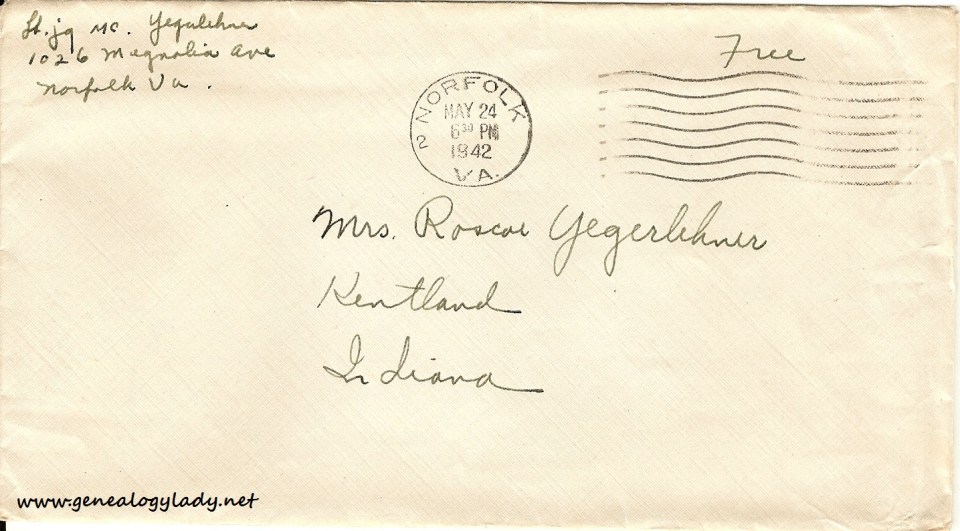 Lt. jg MC. Yegerlehner
1026 Magnolia Ave
Norfolk Va.
Free
NORFOLK
MAY 24
6 30 PM
1942
2
VA.
Mrs. Roscoe Yegerlehner
Kentland
Indiana
www.genealogylady.net